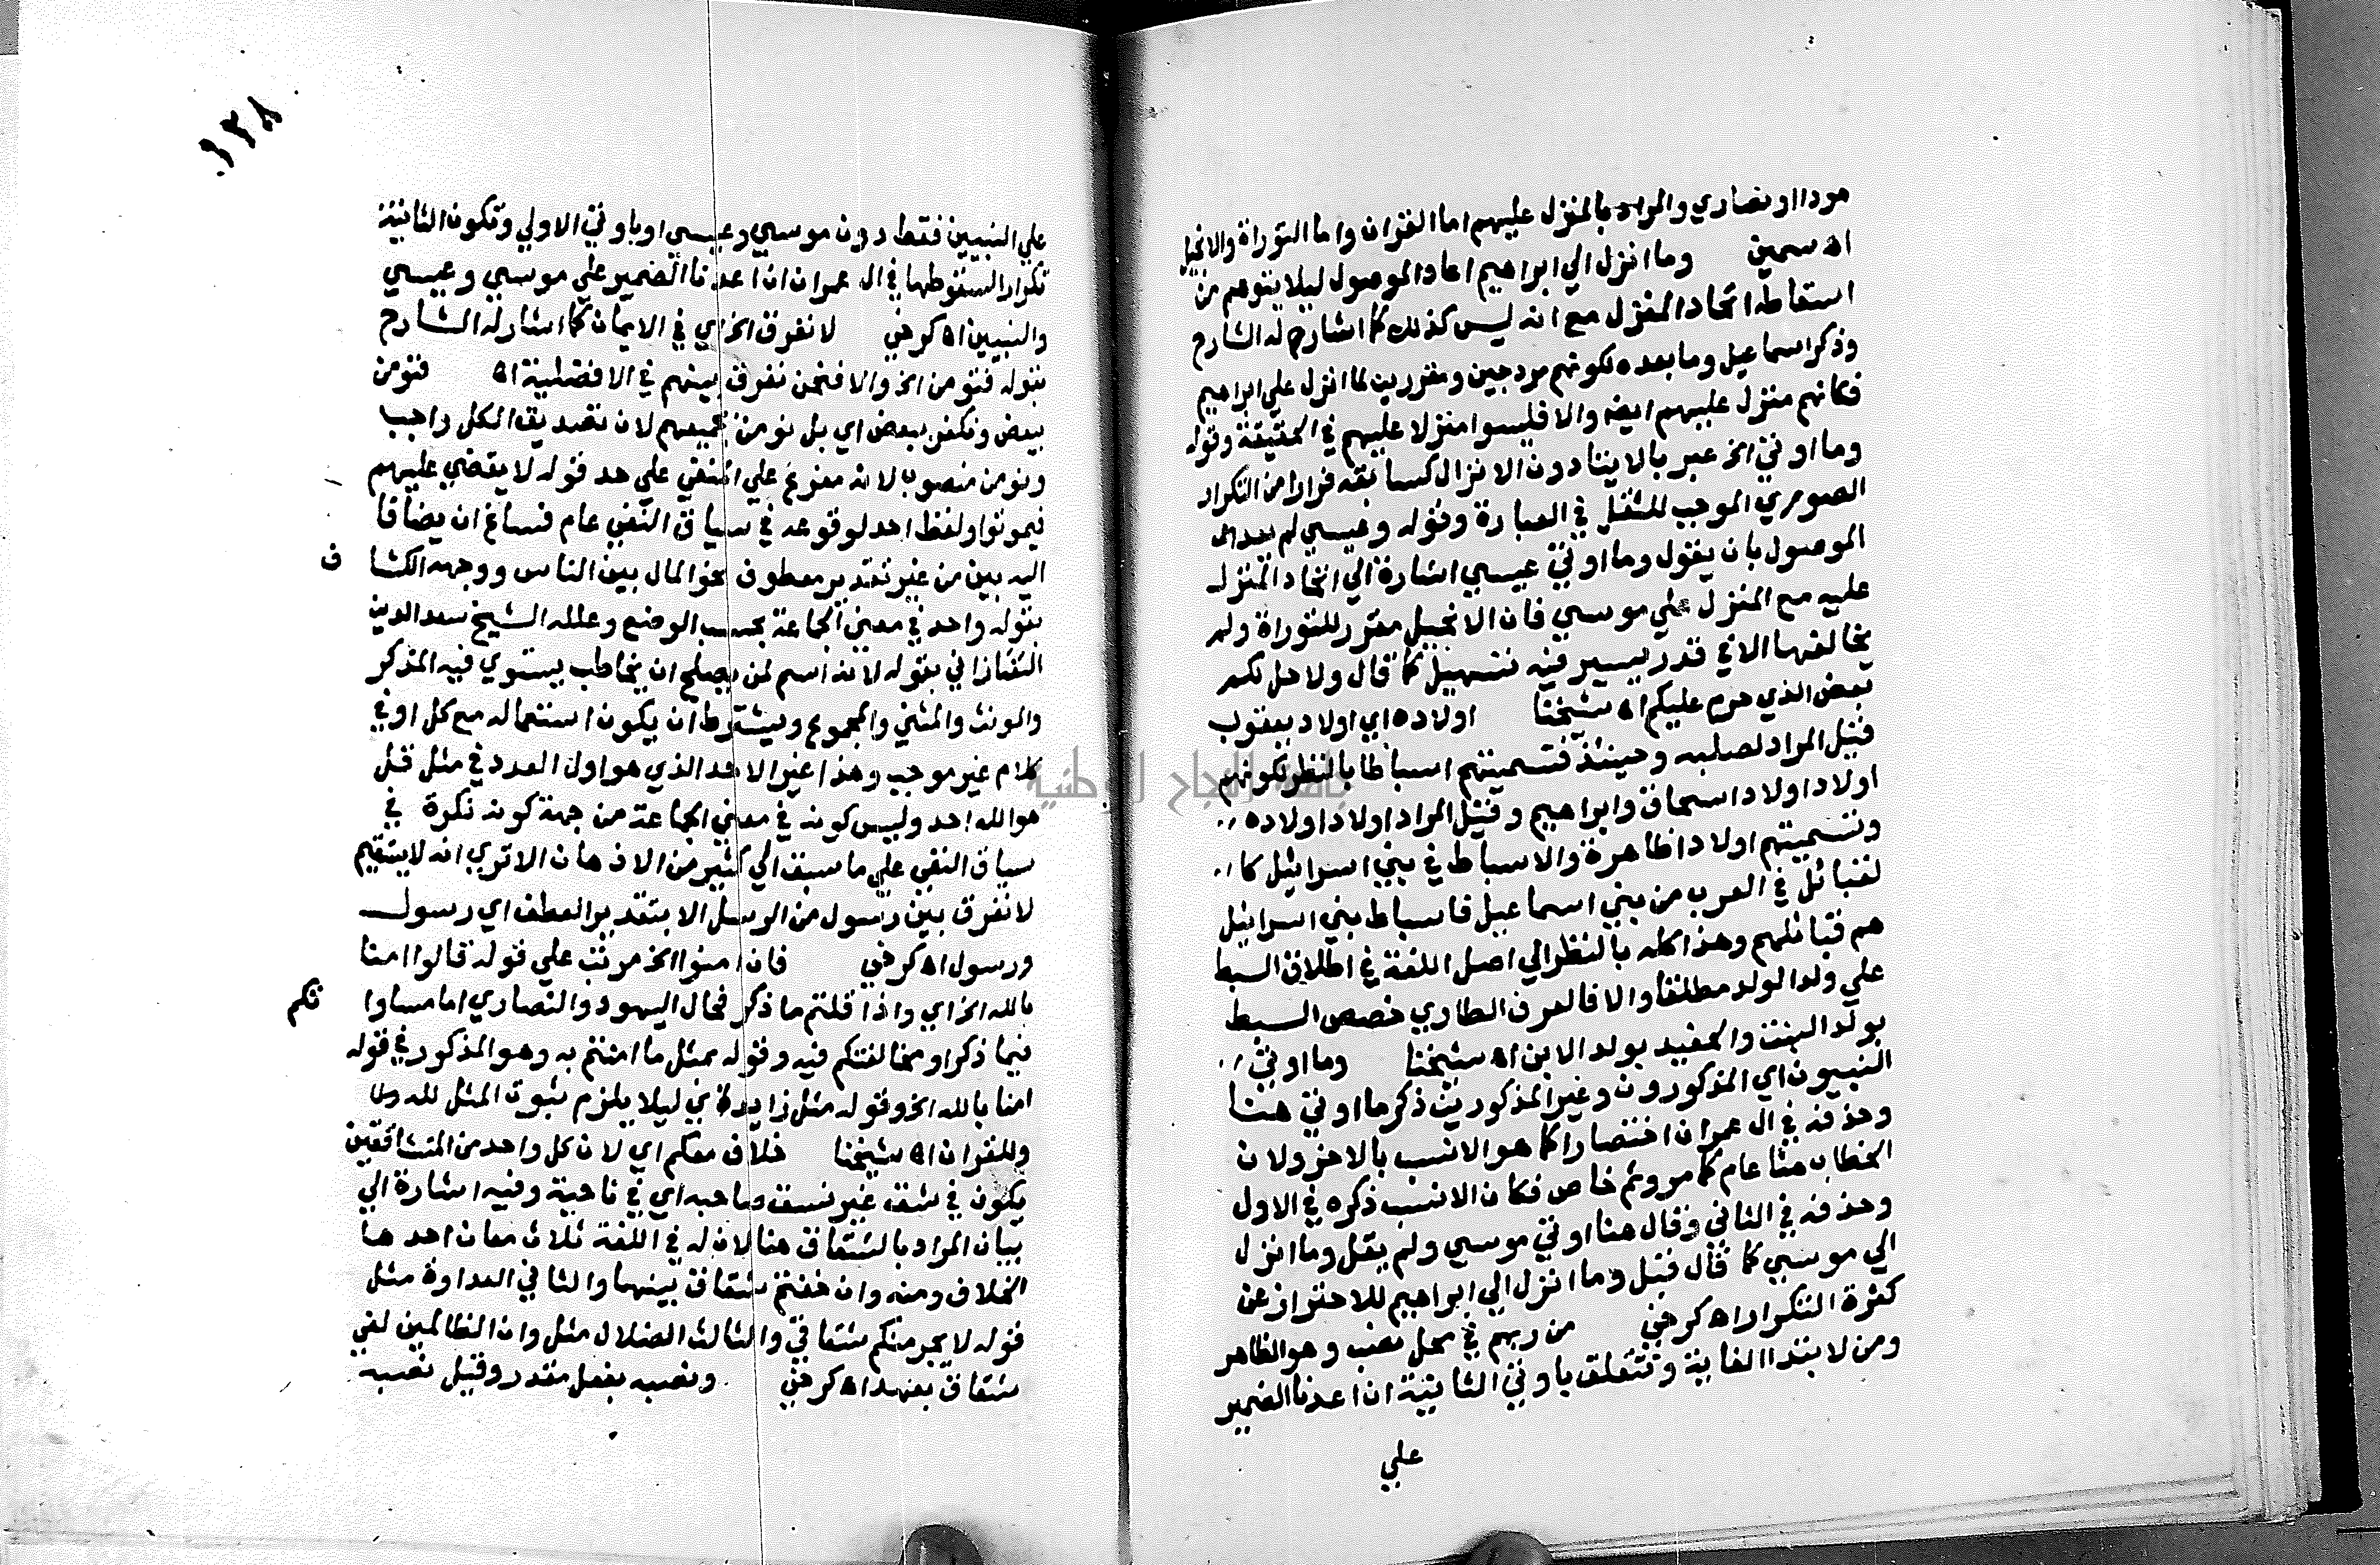 هودا او نصاري والمراد بالمنزل عليهم اما القران واما التوراة والانجيل
اه سمين وما انزل الي ابراهيم اعاد الموصول ليلا يتوهم من
اسقاطه اتحاد المنزل مع انه ليس كذلك كما اشار له الشارح
وذكر اسماعيل وما بعده لكونهم مزدجين ومقررين لما انزل علي ابراهيم
فكانهم منزل عليهم ايضا والا فليسوا منزلا عليهم في الحقيقة وقوله
وما اوتي الخ عبر بالايتا دون الانزال كسابقه فرارا من التكرار
الصوري الموجب للثقل في العبارة وقوله وعيسي لم يعد
الموصول بان يقول وما اوتي عيسي اشارة الي اتحاد المنزل
عليه مع المنزل علي موسي فان الانجيل مقرر للتوراة ولم
يخالفها الا في قدر يسير فيه تسهيل كما قال ولاحل لكم
بعض الذي حرم عليكم اه شيخنا اولاده اي اولاد يعقوب
قيل المراد لصلبه وحينئذ فتسميتهم اسباطا بالنظر لكونهم
اولاد اولاد اسحاق وابراهيم وقيل المراد اولاد اولاده
وتسميتهم اولادا ظاهرة والاسباط في بني اسرائيل كا
لقبائل في العرب من بني اسماعيل فاسباط بني اسرائيل
هم قبائلهم وهذا كله بالنظر الي اصل اللغة في اطلاق السبط
علي ولد الولد مطلقا والا فالعرف الطاري خصص السبط
بولد البنت والحفيد بولد الابن اه شيخنا وما اوتي
النبيون اي المذكورون وغير المذكورين ذكر ما اوتي هنا
وحذفه في ال عمران اختصارا كما هو الانسب بالاخر ولان
الخطاب هنا عام كما مر وثم خاص فكان الانسب ذكره في الاول
وحذفه في الثاني وقال هنا اوتي موسي ولم يقل وما انزل
الي موسي كما قال قبل وما انزل الي ابراهيم للاحتراز عن
كثرة التكرار اه كرخي من ربهم في محل نصب وهو الظاهر
ومن لابتدا الغاية وتتعلق باوتي الثانية ان اعدنا الضمير
علي
١٣٨
علي النبيين فقط دون موسي وعيسي او باوتي الاولي وتكون الثانية
تكرارا لسقوطها في ال عمران ان اعدنا الضمير علي موسي وعيسي
والنبيين اه كرخي لا نفرق الخ اي في الايمان كما اشار له الشارح
بقوله فنومن الخ والا فنحن نفرق بينهم في الافضلية اه فنومن
ببعض ونكفر ببعض اي بل نومن بجميعهم لان تصديق الكل واجب
ونومن منصوب لانه مفرع علي المنفي علي حد قوله لا يقضي عليهم
فيموتوا ولفظ احد لوقوعه في سياق النفي عام فساغ ان يضاف
اليه بين من غير تقدير معطوف نحو المال بين الناس ووجهه الكشا ف
بقوله واحد في معني الجماعة بحسب الوضع وعلله الشيخ سعد الدين
التفتازاني بقوله لانه اسم لمن يصلح ان يخاطب يستوي فيه المذكر
والمونث والمثني والمجموع ويشترط ان يكون استعماله مع كل او في
كلام غير موجب وهذا غير الاحد الذي هو اول العدد في مثل قل
هو الله احد وليس كونه في معني الجماعة من جهة كونه نكرة في
سياق النفي علي ما سبق الي كثير من الاذهان الا تري انه لا يستقيم
لا نفرق بين رسول من الرسل الا بتقدير العطف اي رسول
ورسول اه كرخي فان امنوا الخ مرتب علي قوله قالوا امنا
بالله الخ اي واذا قلتم ما ذكر فحال اليهود والنصاري اما مساوا تكم
فيما ذكر او مخالفتكم فيه وقوله بمثل ما امنتم به وهو المذكور في قوله
امنا بالله الخ وقوله مثل زايدة اي ليلا يلزم ثبوت المثل لله
وللقران اه شيخنا خلاف معكم اي لان كل واحد من المتشاققين
يكون في شق غير شق صاحبه اي في ناحية وفيه اشارة الي
بيان المراد بالشقاق هنا لان له في اللغة ثلاث معان احدها
الخلاف ومنه وان خفتم شقاق بينهما والثاني العداوة مثل
قوله لا يجرمنكم شقاقي والثالث الضلال مثل وان الظالمين لفي
شقاق بعيد اه كرخي ونصبه بفعل مقدر وقيل نصبه
جامعة النجاح الوطنية